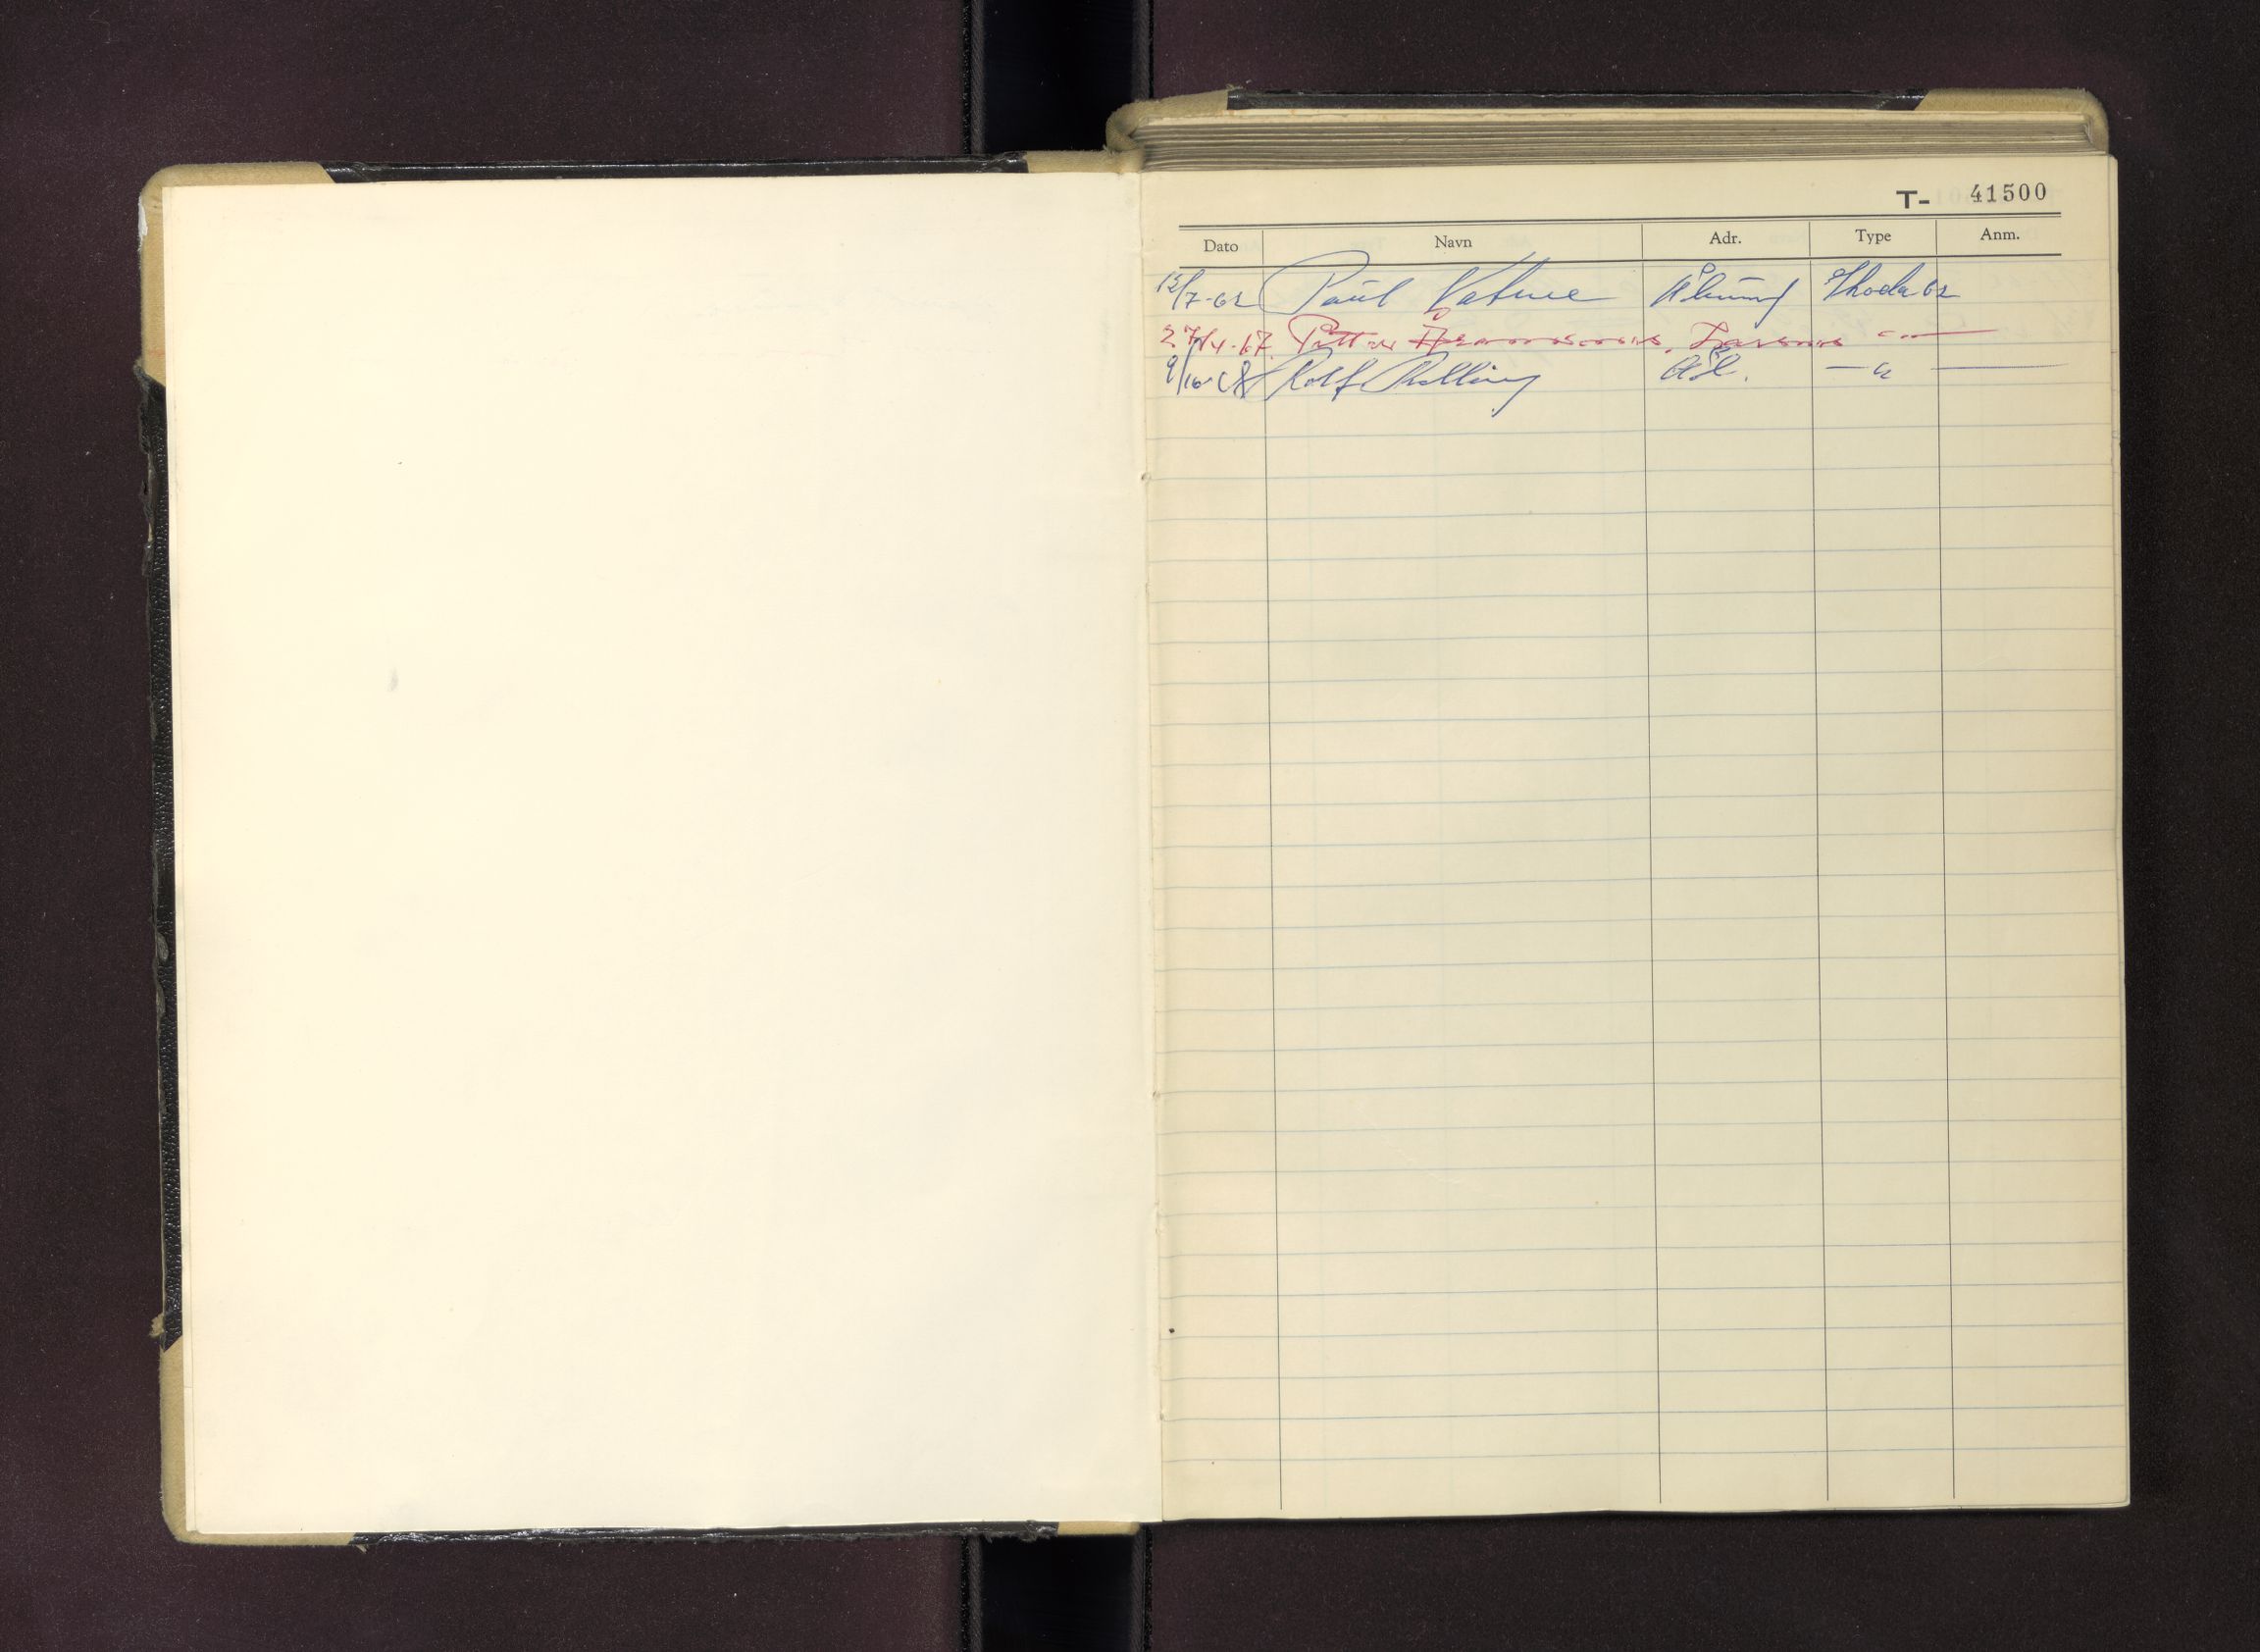 T- 41500
Dato Navn Adr. Type Anm.
12/7-62 Paul Vatne Ålesund Skoda 62
27/4-67. Petter
9/10-68 Rolf Ålb. — " —